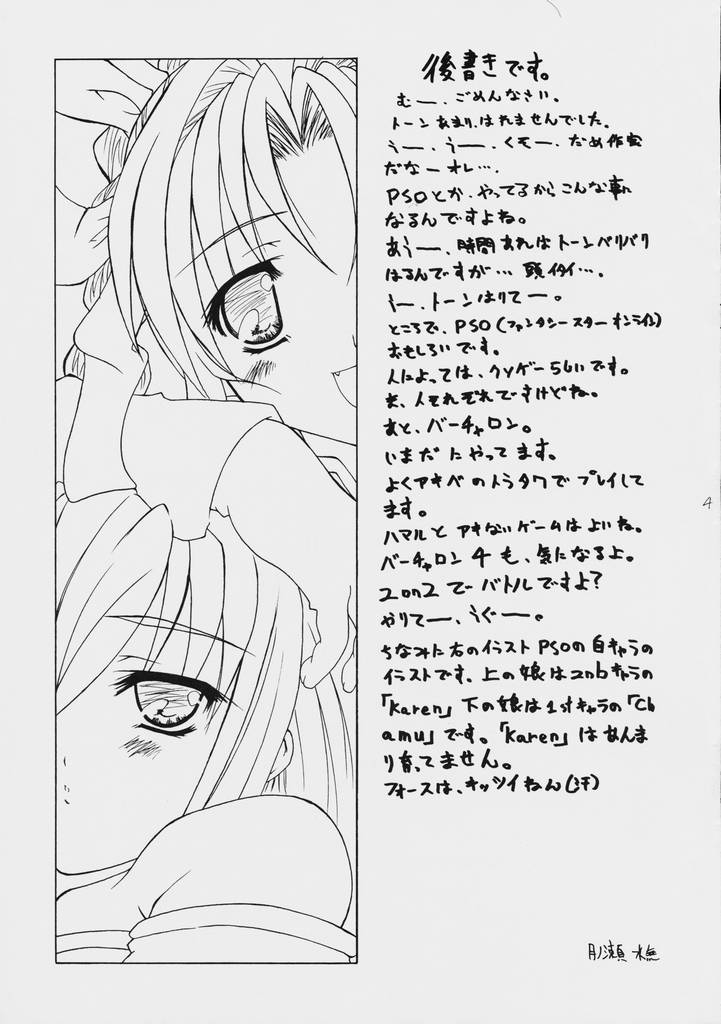 後書きです。
むー、ごめんなさい。
トーンあまりはれませんでした。
うー、うー、くそー、だめ作家
だなーオレ…。
PSOとか、やってるからこんな事に
なるんですよね。
あうー、時間あればトーンバリバリ
はるんですが…頭イタイ…。
うー、トーンはりてー。
ところで、PSO(ファンタシースターオンライン)
おもしろいです。
人によっては、クソゲーらしいです。
ま、人それぞれですけどね。
あと、バーチャロン。
いまだにやってます。
よくアキバのトラタワでプレイして
ます。
ハマルとアキないゲームはよいね。
バーチャロン4も、気になるよ。
2on2でバトルですよ?
やりてー、うぐー。
ちなみに右のイラストPSOの自キャラの
イラストです、上の娘は2ndキャラの
「Karen」下の娘は1stキャラの「Ch
amu」です。「Karen」はあんま
り育ってません。
フォースは、キッツイねん(汗)
4